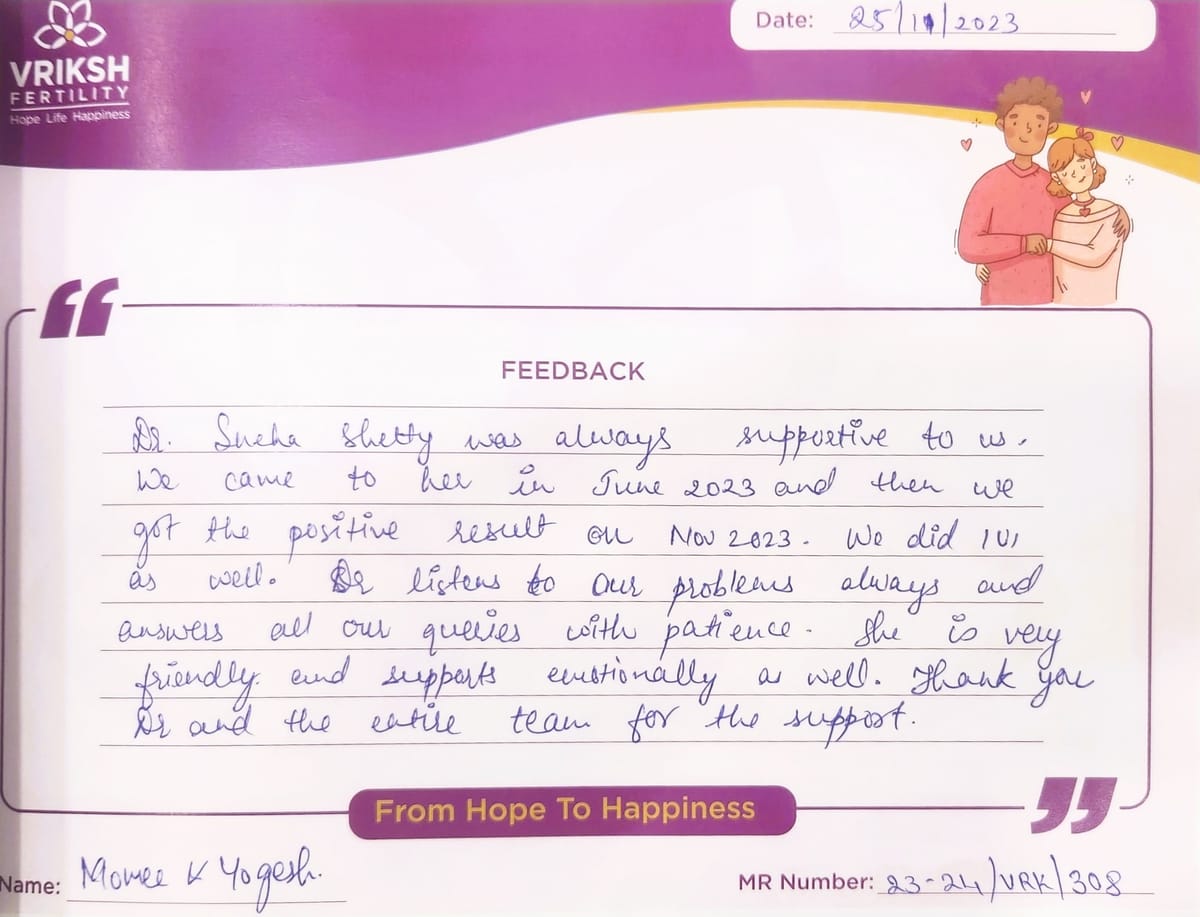 VRIKSH
FERTILITY
Hope Life Happiness
Date: 25/11/2023
FEEDBACK
Dr. Sneha Shetty was always supportive to us.
We came to her in June 2023 and then we
got the positive result on Nov 2023. We did IUI
as well. Dr listens to our problems always and
answers all our queries with patience. She is very
friendly. and supports emotionally as well. Thank you
Dr and the entire team for the support.
From Hope To Happiness
Name: K Yogesh.
MR Number: 23-24/VRK/308